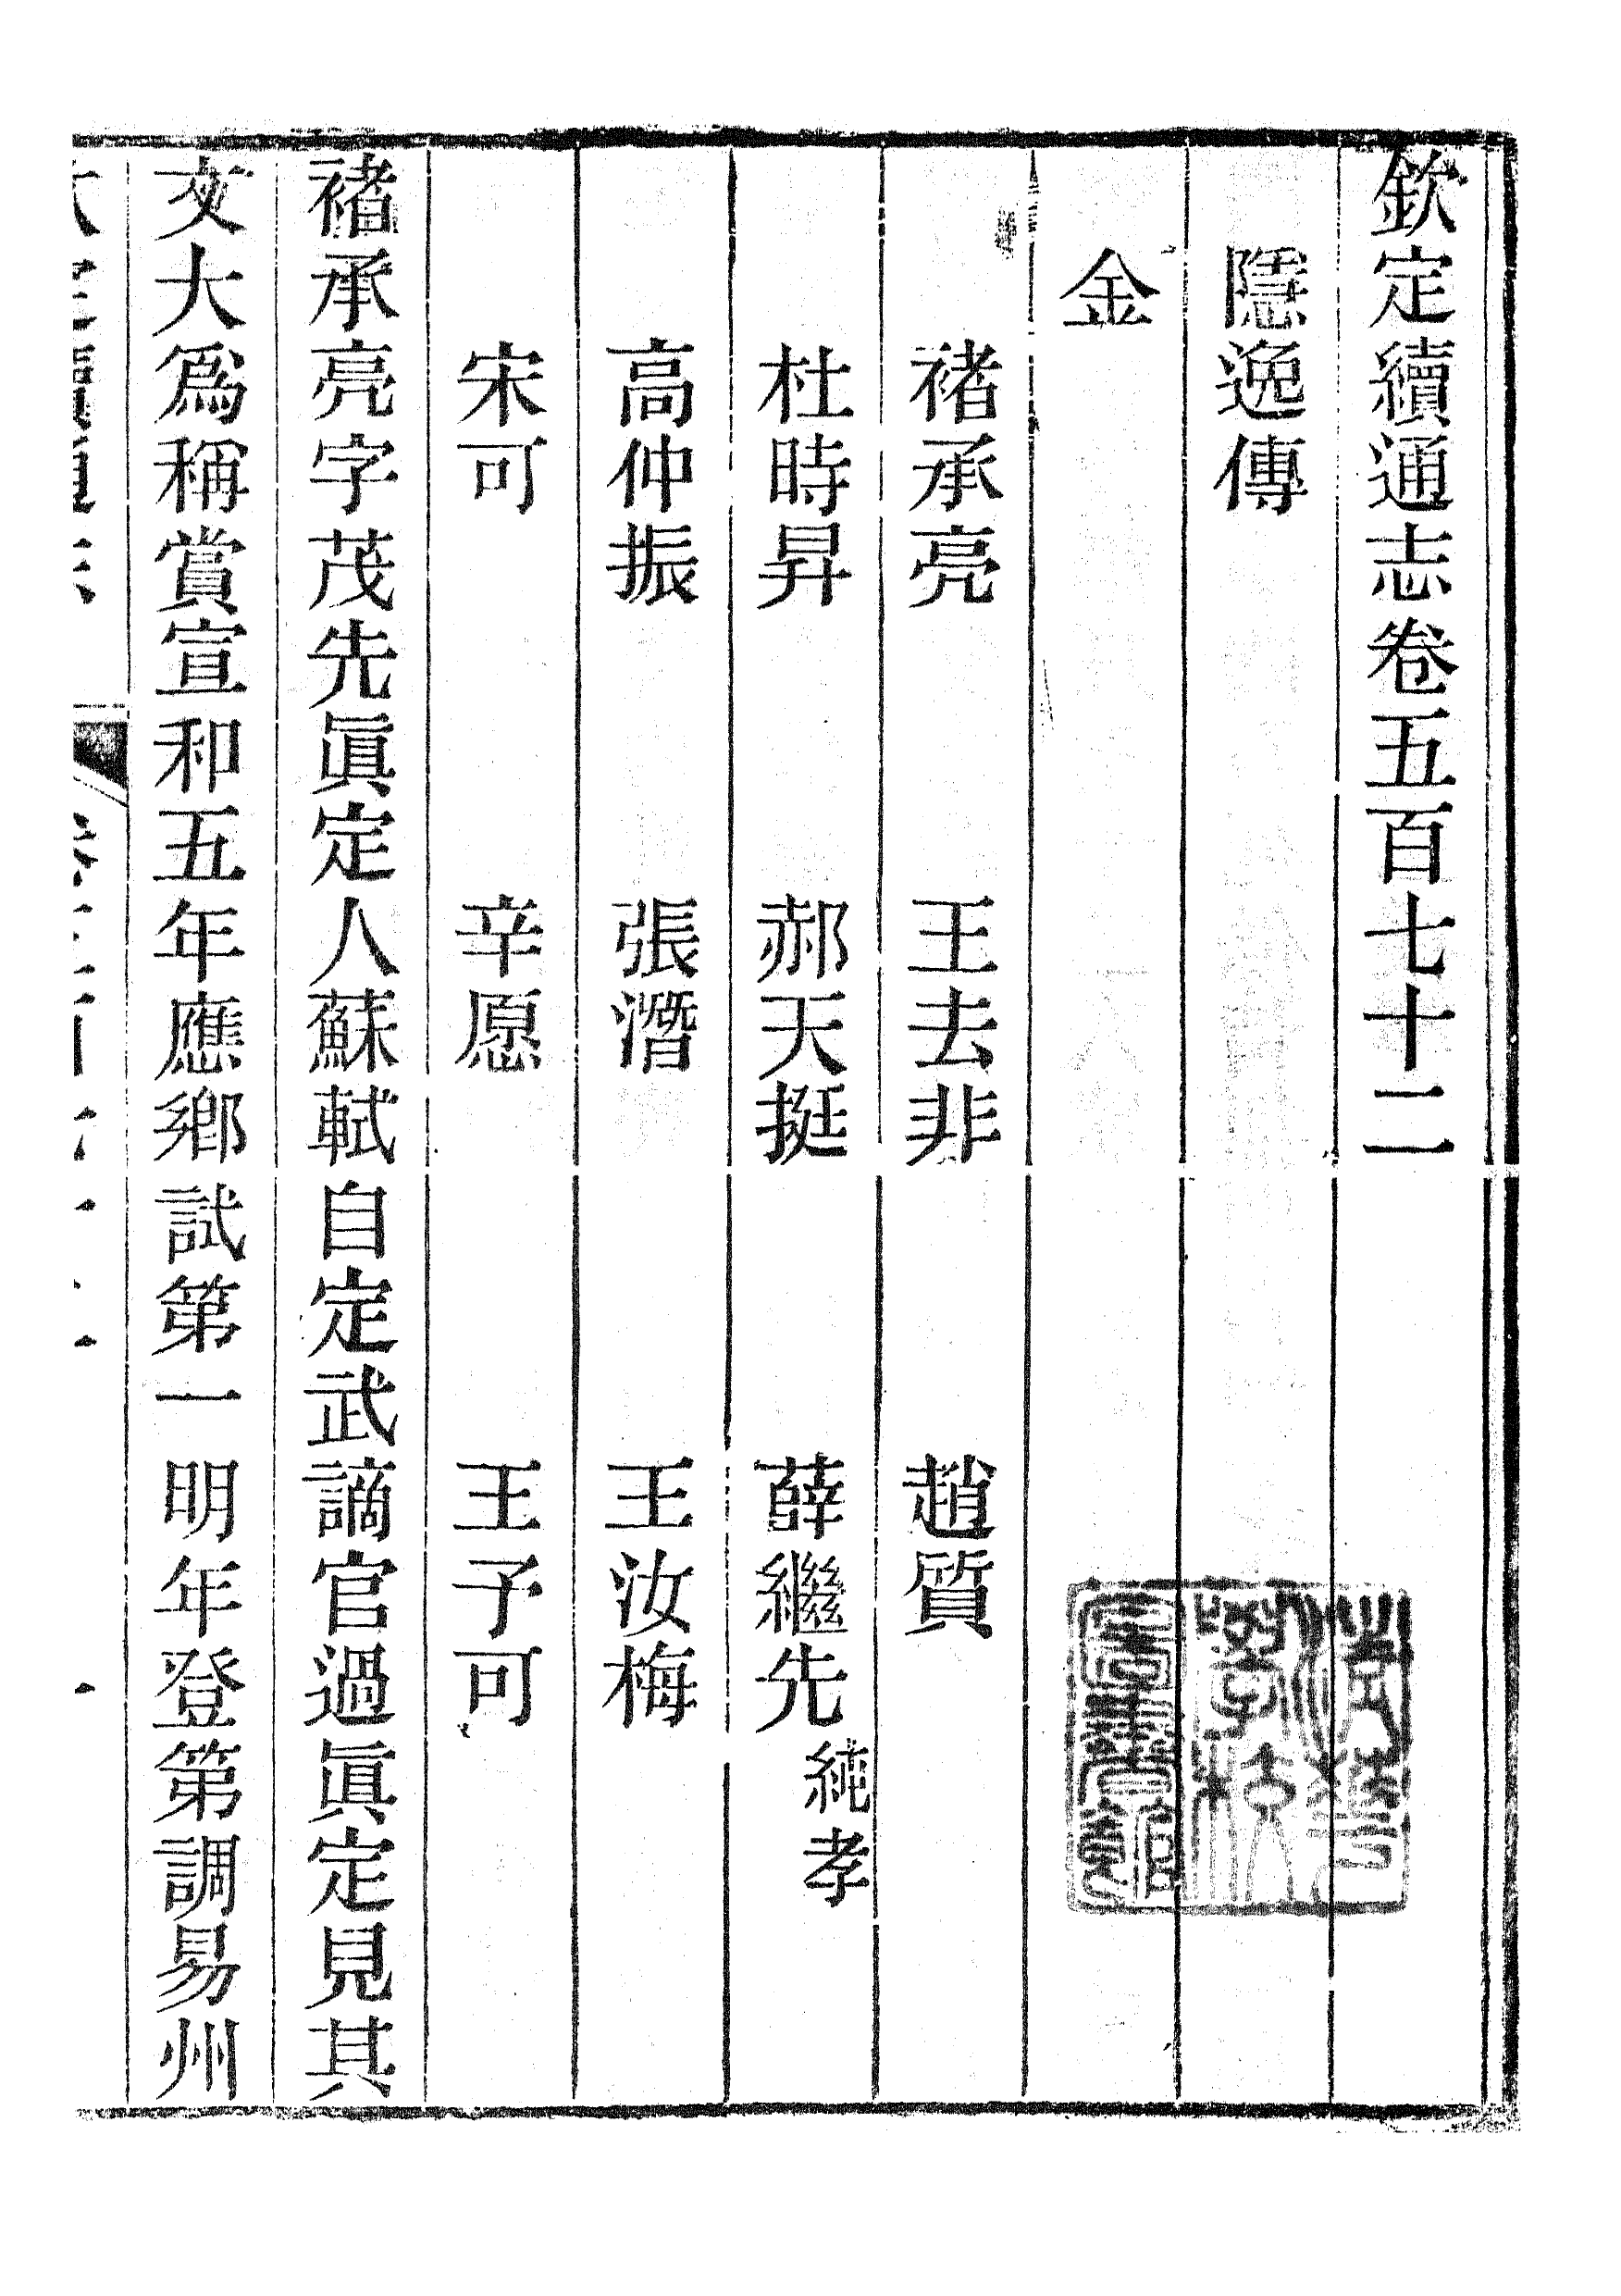 欽定續通志卷五百七十二
隱逸傳
金
褚承亮 王去非 趙質
杜時昇 郝天挺 薛繼先 純孝
高仲振 張潛 王汝梅
宋可 辛愿 王予可
褚承亮字茂先眞定人蘇軾自定武謫官過眞定見其
文大爲稱賞宣和五年應鄉試第一明年登第調易州